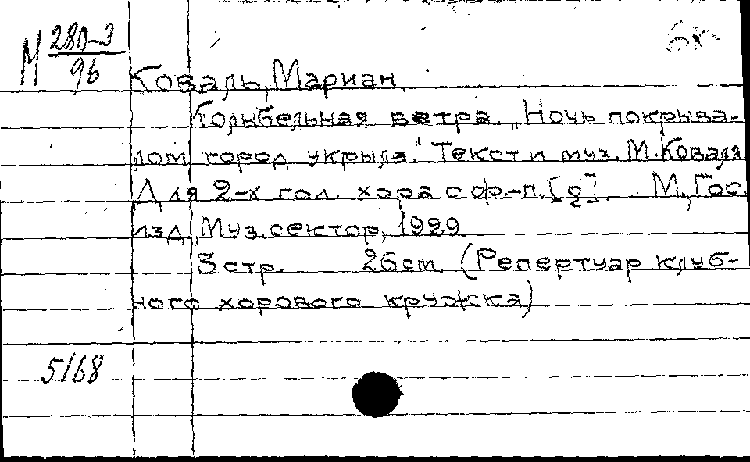 М 280-3
96
Коваль, Мариан.
Колыбельная ветра. "Ночь покрыва-
лом город укрыла." Текст и муз. М. Коваля
Для 2-х гол. хора с ф-п. [g] М., Гос
изд., Муз. сектор, 1929.
3 стр. 26 cm. (Репертуар клуб-
ного хорового кружка)
5/68